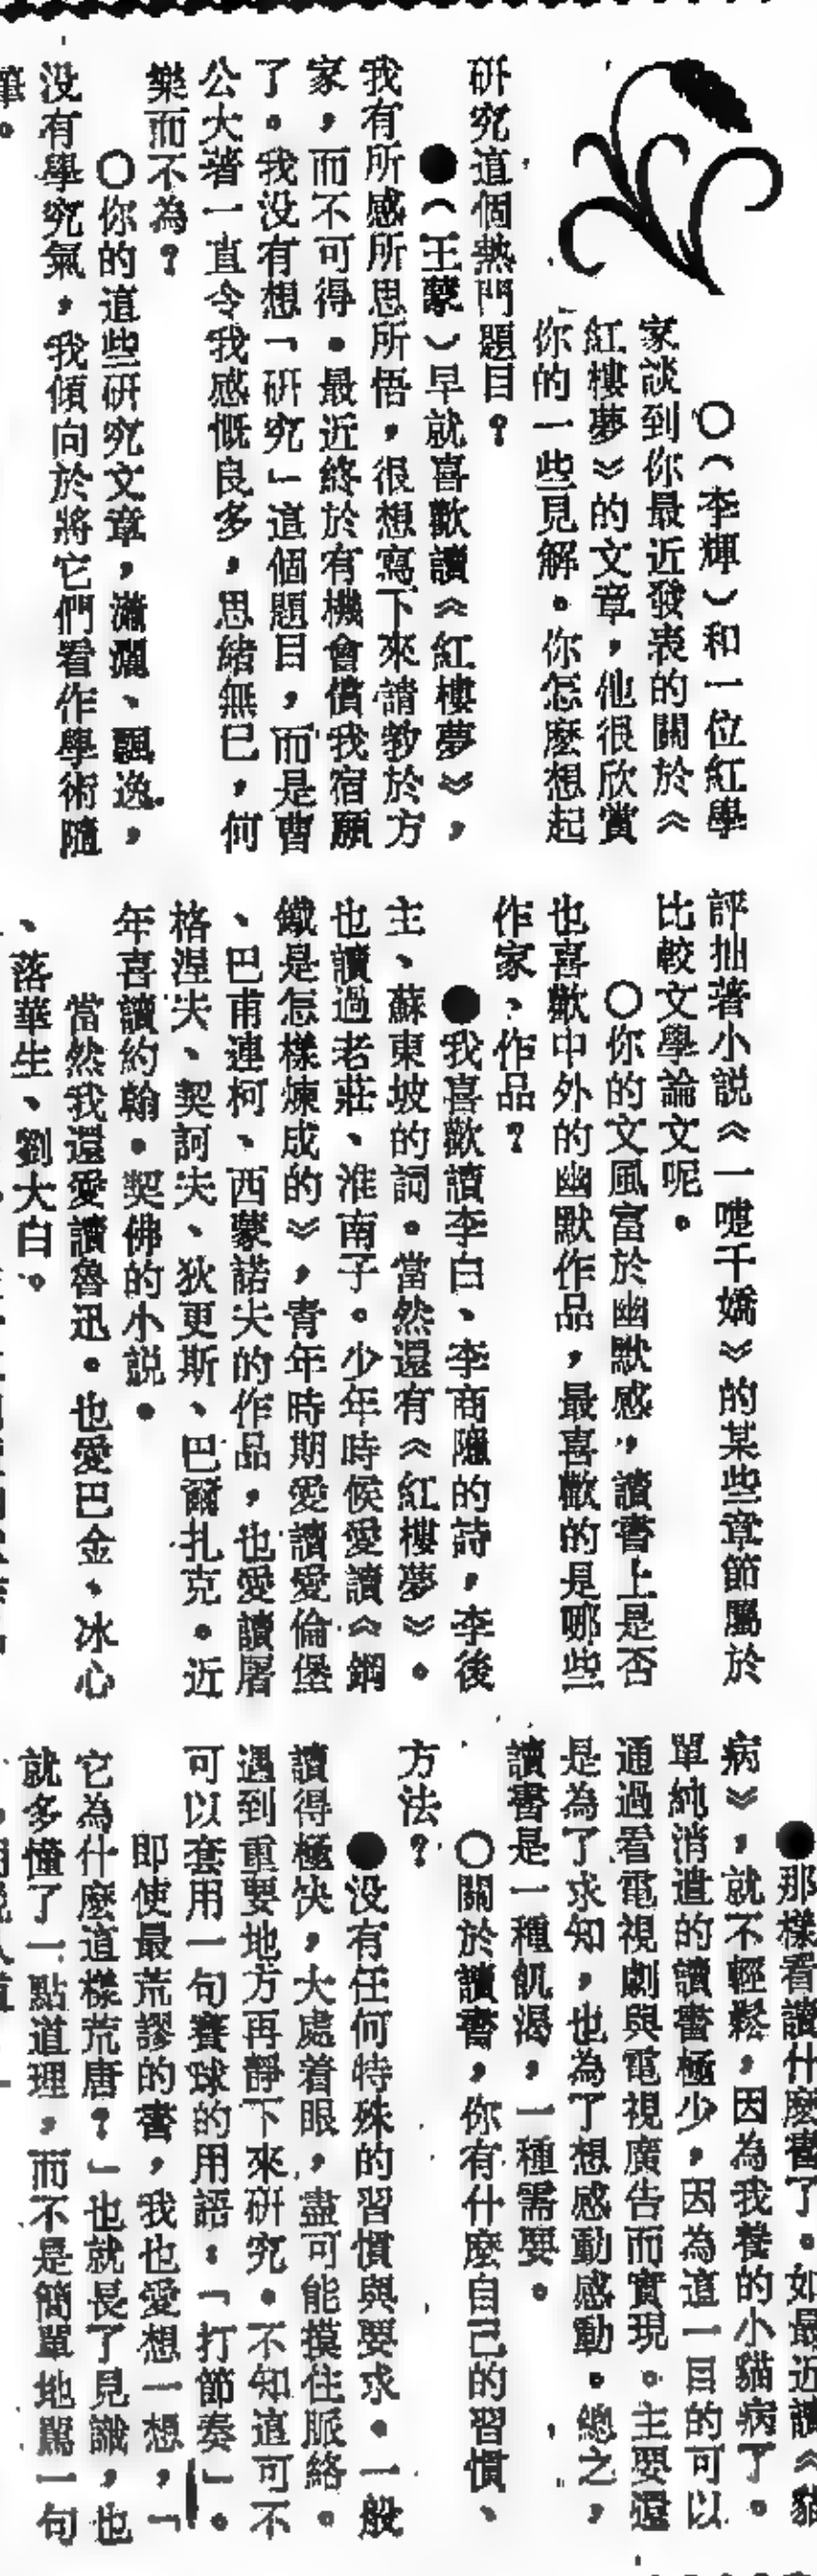 ○（李輝）和一位紅學
家談到你最近發表的關於《
紅樓夢》的文章，他很欣賞
你的一些見解。你怎麼想起
研究這個熱門題目？
●（王蒙）早就喜歡讀《紅樓夢》，
我有所感所思所悟，很想寫下來請教於方
家，而不可得。最近終於有機會償我宿願
了。我没有想「研究」這個題目，而是曹
公大著一直令我感慨良多，思緒無已，何
樂而不為？
○你的這些研究文章，瀟灑、飄逸，
没有學究氣，我傾向於將它們看作學術隨
筆。
評拙著小説《一嚏千嬌》的某些章節屬於
比較文學論文呢。
○你的文風富於幽默感，讀書上是否
也喜歡中外的幽默作品，最喜歡的是哪些
作家、作品？
●我喜歡讀李白、李商隱的詩，李後
主、蘇東坡的詞。當然還有《紅樓夢》。
也讀過老莊、淮南子。少年時候愛讀《鋼
鐵是怎樣煉成的》，青年時期愛讀愛倫堡
、巴甫連柯、西蒙諾夫的作品，也愛讀屠
格涅夫、契訶夫、狄更斯、巴爾扎克。近
年喜讀約翰。契佛的小説。
當然我還愛讀魯迅。也愛巴金、冰心
、落華生、劉大白。
●那樣看讀什麼書了。如最近讀《貓
病》，就不輕鬆，因為我養的小貓病了。
單純消遣的讀書極少，因為這一目的可以
通過看電視劇與電視廣告而實現。主要還
是為了求知，也為了想感動感動。總之，
讀書是一種飢渴，一種需要。
○關於讀書，你有什麼自己的習慣、
方法？
●没有任何特殊的習慣與要求。一般
讀得極快，大處着眼，盡可能摸住脈絡。
遇到重要地方再靜下來研究。不知這可不
可以套用一句賽球的用語：「打節奏」。
即使最荒謬的書，我也愛想一想，「
它為什麼這樣荒唐？」也就長了見識，也
就多懂了一點道理，而不是簡單地罵一句